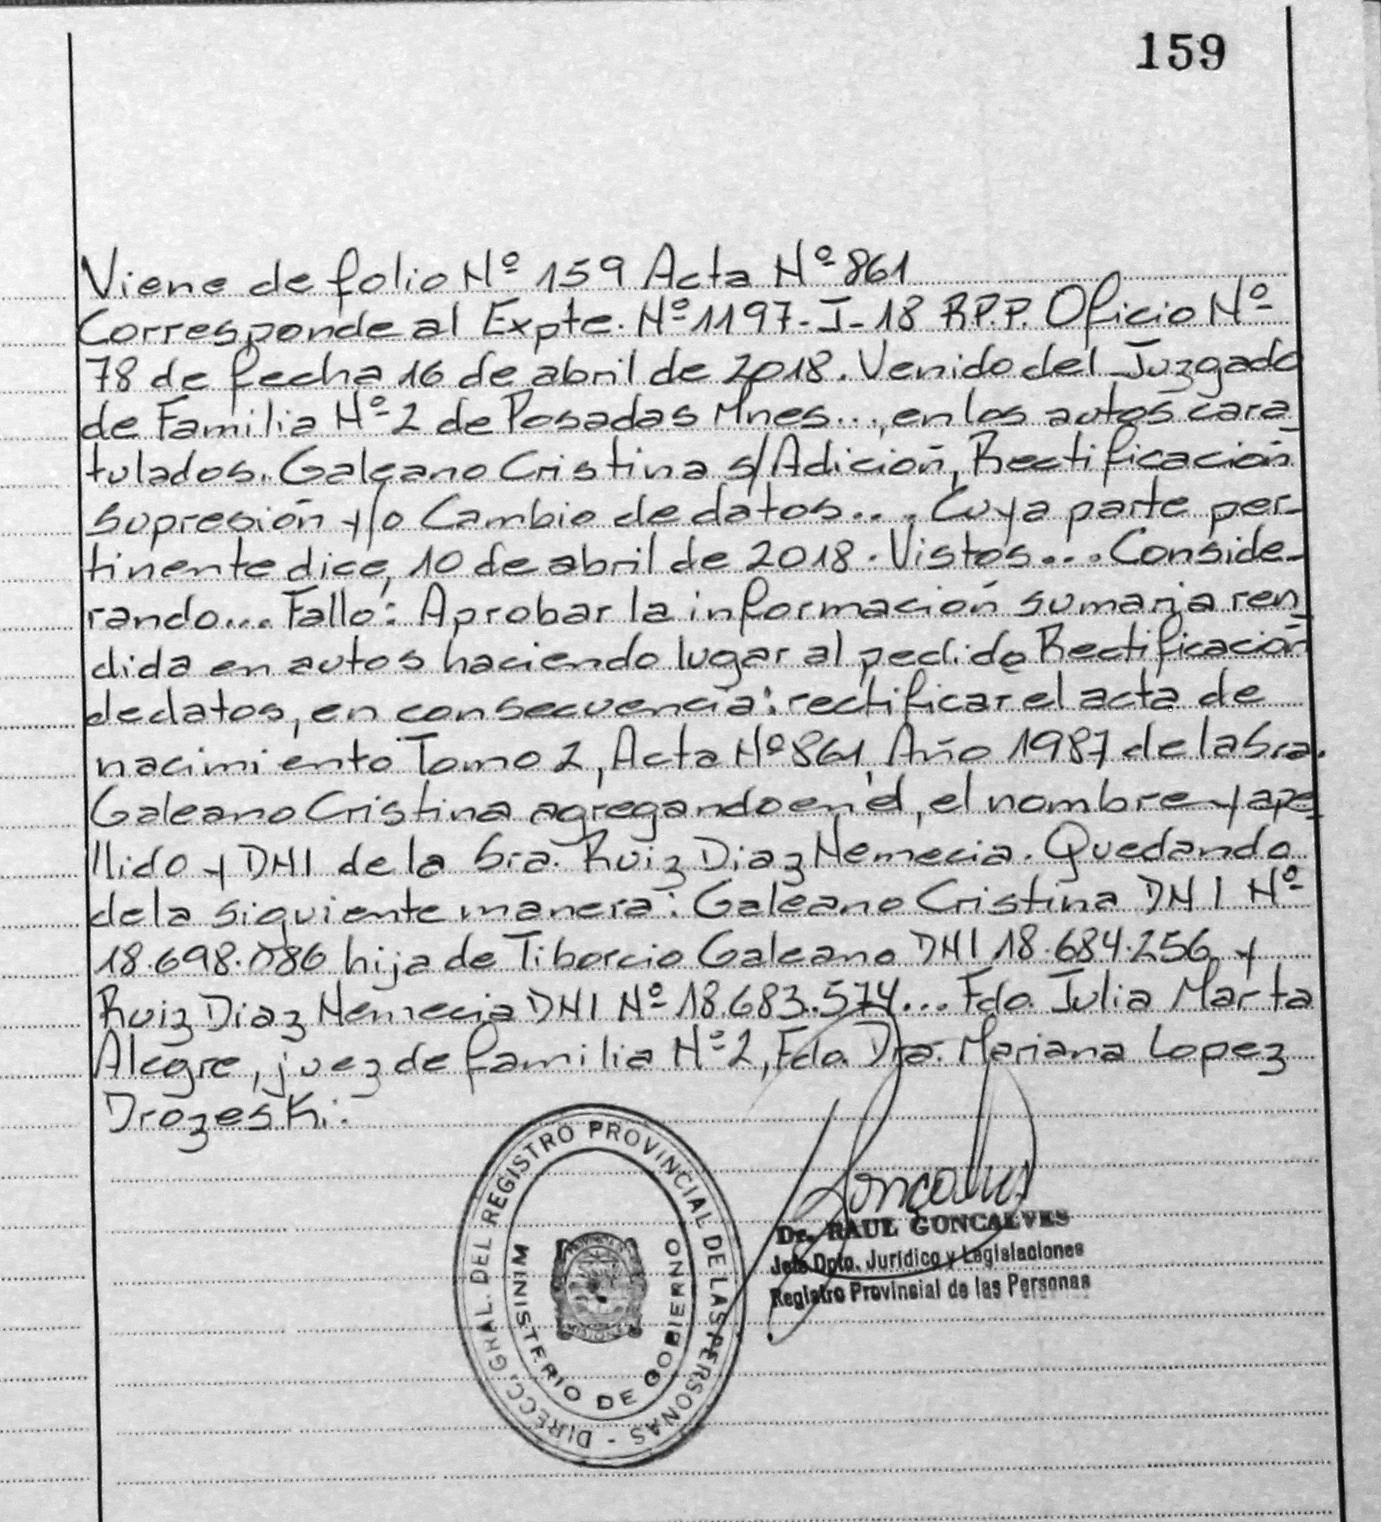 159
Viene de folio Nº 159 Acta Nº 861
Corresponde al Expte. Nº 1197-J-18 R.P.P. Oficio Nº
78 de fecha 16 de abril de 2018. Venido del Juzgado
de Familia Nº 2 de Posadas Mnes..., en los autos cara
tulados. Galeano Cristina s/Adición, Rectificación
supresión y/o Cambio de datos.... Cuya parte per-
tinente dice, 10 de abril de 2018. Vistos... Conside-
rando... Fallo: Aprobar la información sumaria ren
dida en autos haciendo lugar al pedido Rectificación
de datos, en consecuencia: rectificar el acta de
nacimiento Tomo 2, Acta Nº 861, Año 1987 de la Sra.
Galeano Cristina agregando en él, el nombre y ape
llido y DNI de la Sra. Ruiz Diaz Nemecia. Quedando
de la siguiente manera: Galeano Cristina DNI Nº
18.698.086 hija de Tiborcio Galeano DNI 18.684.256 y
Ruiz Diaz Nemecia DNI Nº 18.683.574... Fdo. Julia Marta
Alegre, juez de familia Nº 2, Fdo. Dra. Mariana Lopez
Drozeski.
DIRECC. GRAL. DEL REGISTRO PROVINCIAL DE LAS PERSONAS -
MINISTERIO DE GOBIERNO
Dr. RAUL GONCALVES
Jefe Dpto. Jurídico y Legislaciones
Registro Provincial de las Personas